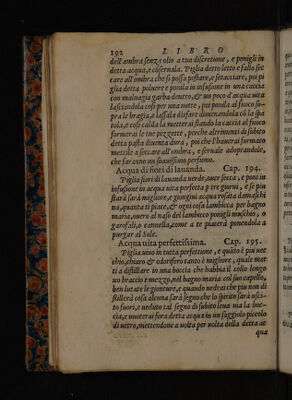 192 LIBRO
dell'ambra senza olio a tua discretione, e ponigli in
detta acqua, e coseruala. Piglia detto letto e fallo sec
care all'ombra che si possa pestare, e setacciare, poi pi
glia detta poluere e ponila in infusione in una caccia
con maluagia garba dentro, & un poco d'acqua uita
lasciandola così per una notte, poi pondla al fuoco so-
pra le bragia, e lassala disfare dimenandola cō la spa
tola, e così calda la metterai stando la caccia al fuoco
formerai le tue pozzette, perche altrimenti di subito
detta pasta diventa dura, poi che l'hauerai formato
mettile a seccare all'ombra, e seruale adoprandole,
che faranno un suauissimo perfumo.
Acqua di fiori di lauanda. Cap. 194.
Piglia fiori di lauanda uerde, ouer secca, e poni in
infusione in acqua uita perfetta p tre giorni, e se piu
starà sarà migliore, e giungini acqua rosata damaschi
na, quanta ti piace, & ogni cosa lambicca per bagno
maria, ouero al naso del lambicco ponigli muschio, o
garofali, o cannella, come a te piacerà ponendola a
purgar al Sole.
Acqua uita perfettissima. Cap. 195.
Piglia uino in tutta perfettione, e quāto è piu uec
chio, chiaro & odorifero tanto è migliore, quale met
ti a distillare in una boccia che habbia il collo longo
un braccio e mezzo, nel bagno maria col suo capello,
ben lutate le gionture, e quando uedrai che piu non di
stillerà cosa alcuna sarà segno che lo spirito sarà usci-
to fuori, e ueduto tal segno di subito leua uia la boc-
cia, e uuoterai fora detta acqua in un saggiolo piccolo
di uetro, mettendone a uolta per uolta della detta ac
qua